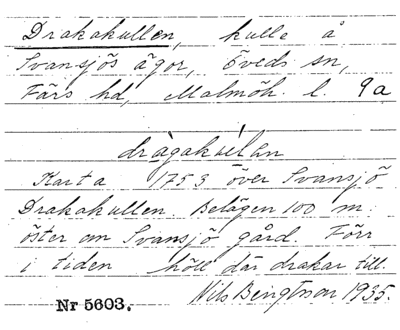 Drakakullen, kulle å
Svansjös ägor, Öveds sn,
Färs hd, Malmöh. l. 9a
dràgakúlan
Karta 1753 över Svansjö
Drakakullen Belägen 100 m.
öster om Svansjö gård. Förr
i tiden höll där drakar till.
Nils Bengtsson 1935.
Nr 5603.